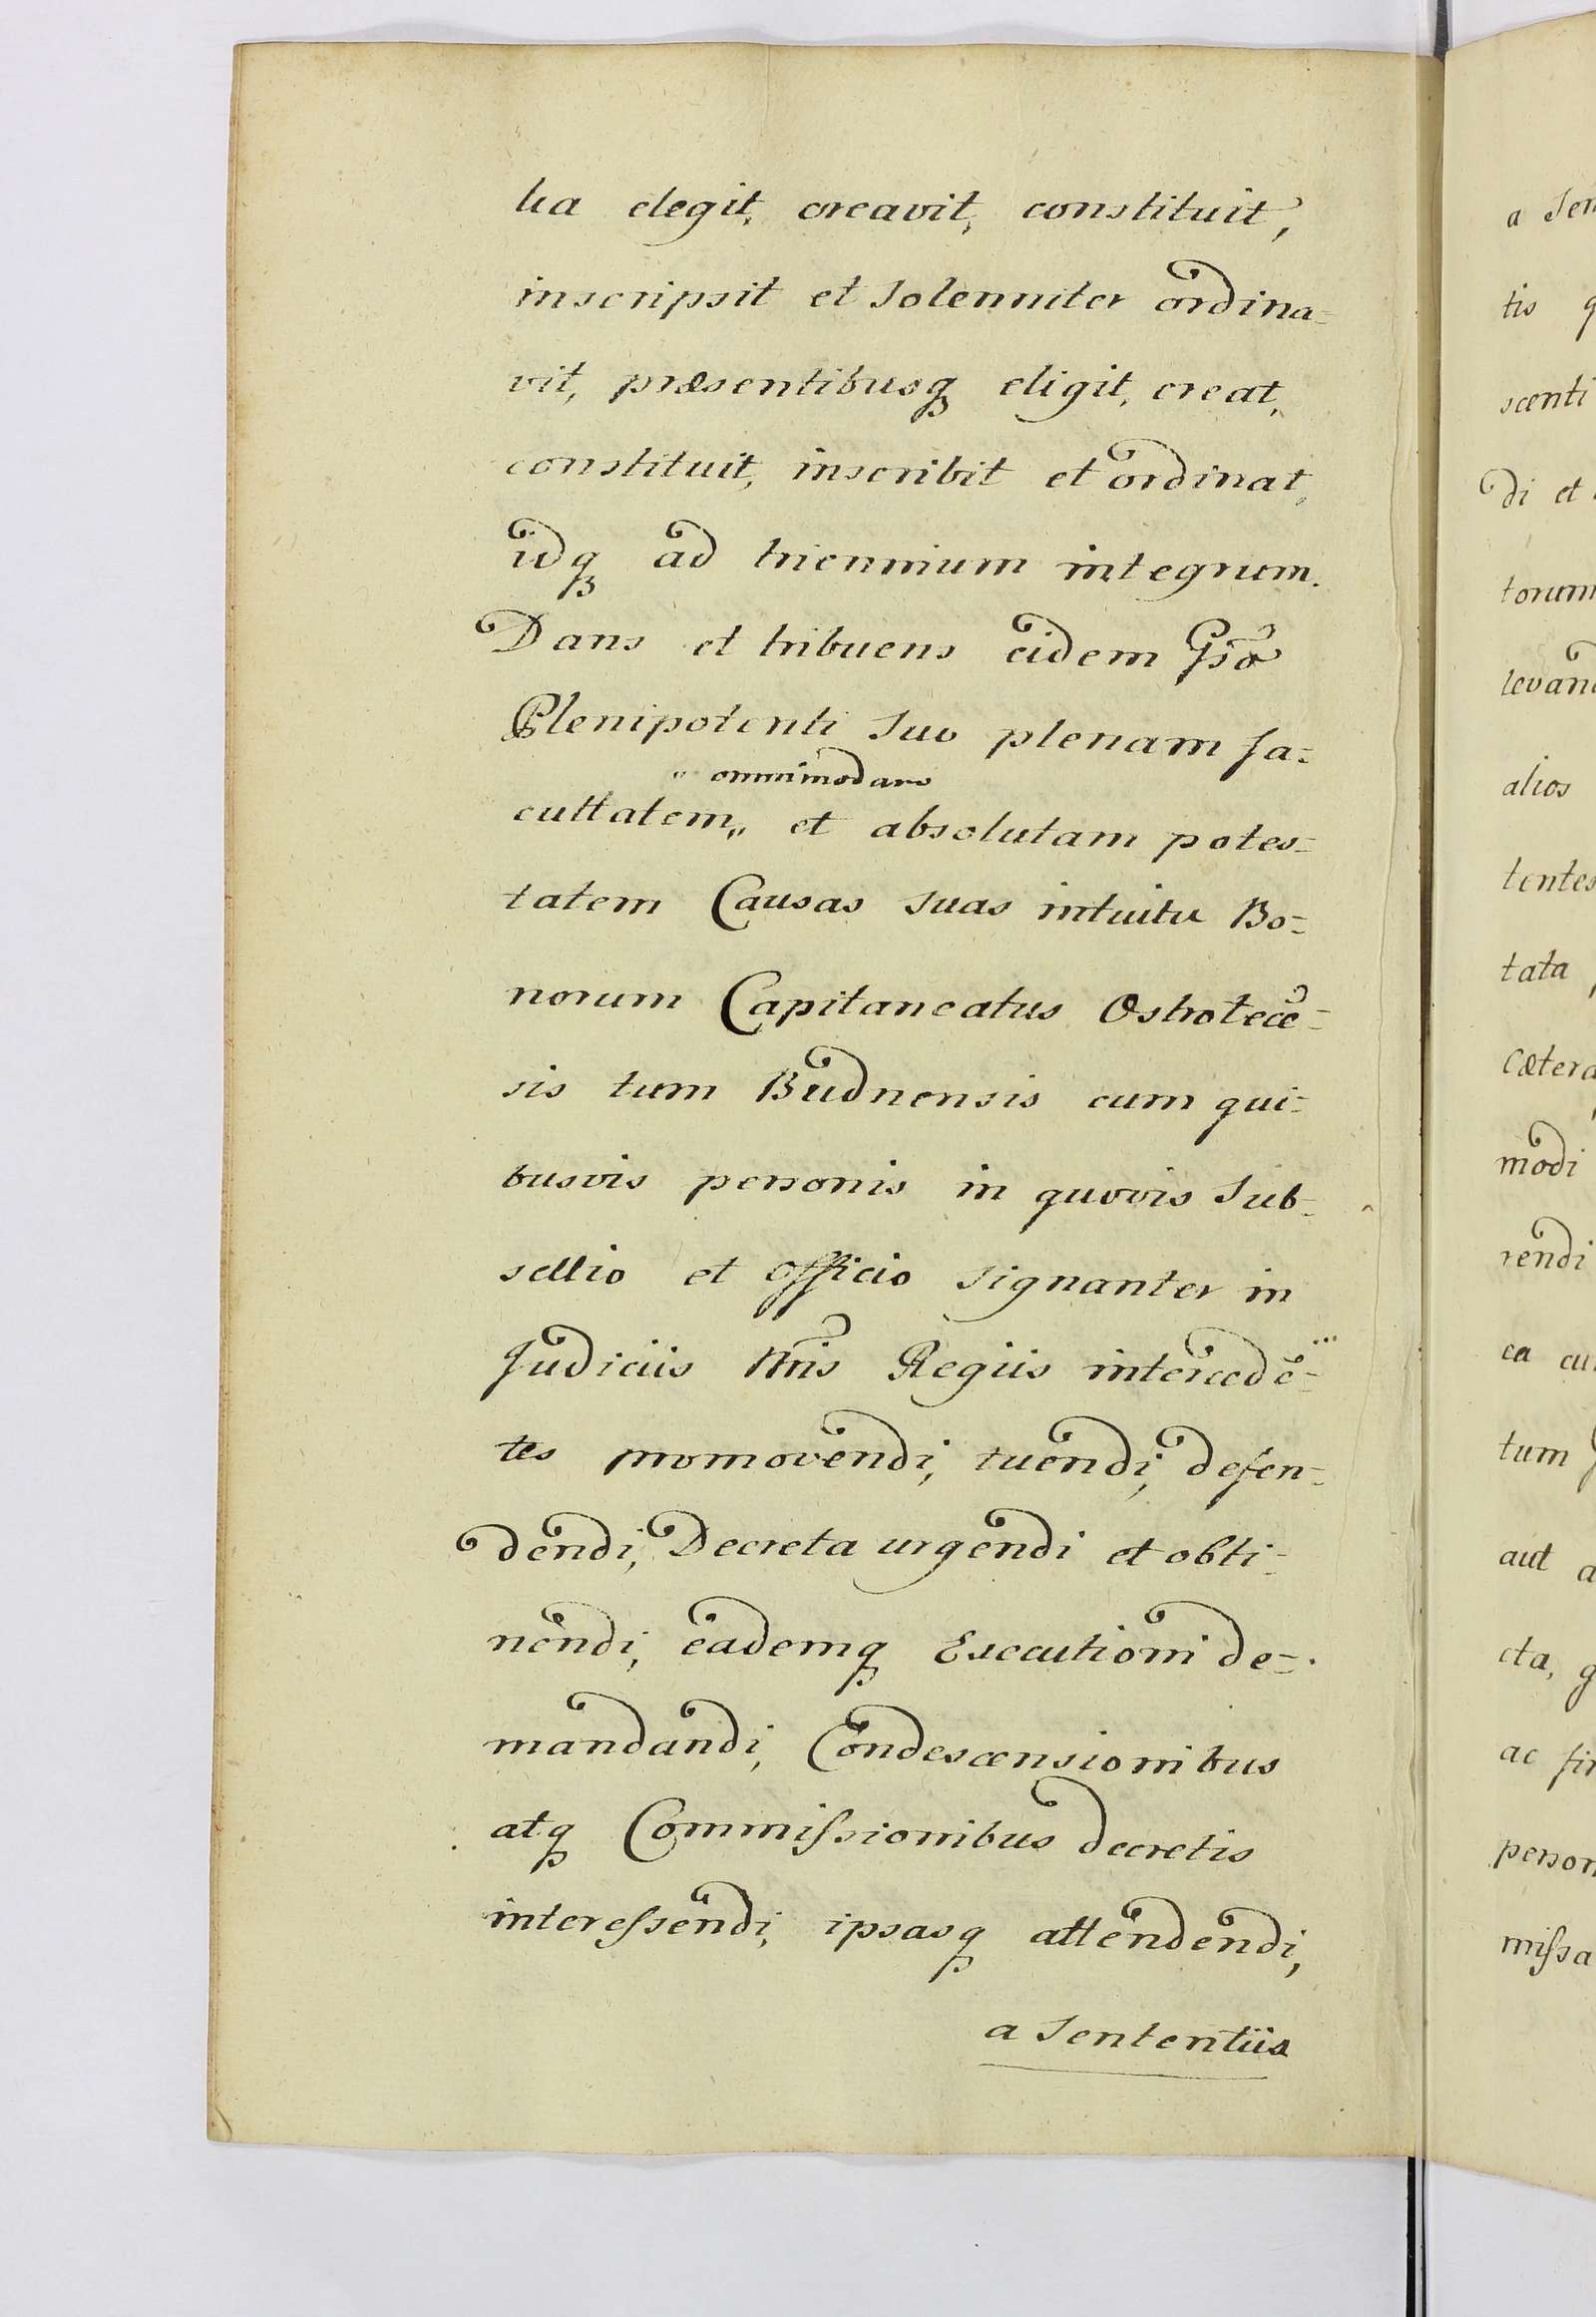 lia elegit, creavit, constituit,
inscripsit et Solenniter ordina=
vit, præsentibusq́ eligit, creat,
constituit, inscribit et ordinat,
idq́ ad triennium integrum.
Dans et tribuens eidem Gsō
Plenipotenti Suo plenam fa=
" omnimodam
cultatem„ et absolutam potes=
tatem Causas suas intuitu Bo=
norum Capitaneatus Ostrotecē=
sis tum Budnensis cum qui=
busvis personis in quovis Sub=
sellio et officio signanter in
Judiciis Nr̄is Regiis intercedē=
tes promovendi, tuendi, defen=
dendi, Decreta urgendi et obti=
nendi, eademq́ Executioni de=
mandandi, Condescensionibus
atq́ Commiſsionibus decretis
intereſsendi, ipsasq́ attendendi,
a Sententiis
a Sen
tis q
scenti
di et
torum
levan
alios
tentes
tata
Cætera
modi
rendi
ea cu
tum
aut a
cta, g
ac fir
person
miſsa